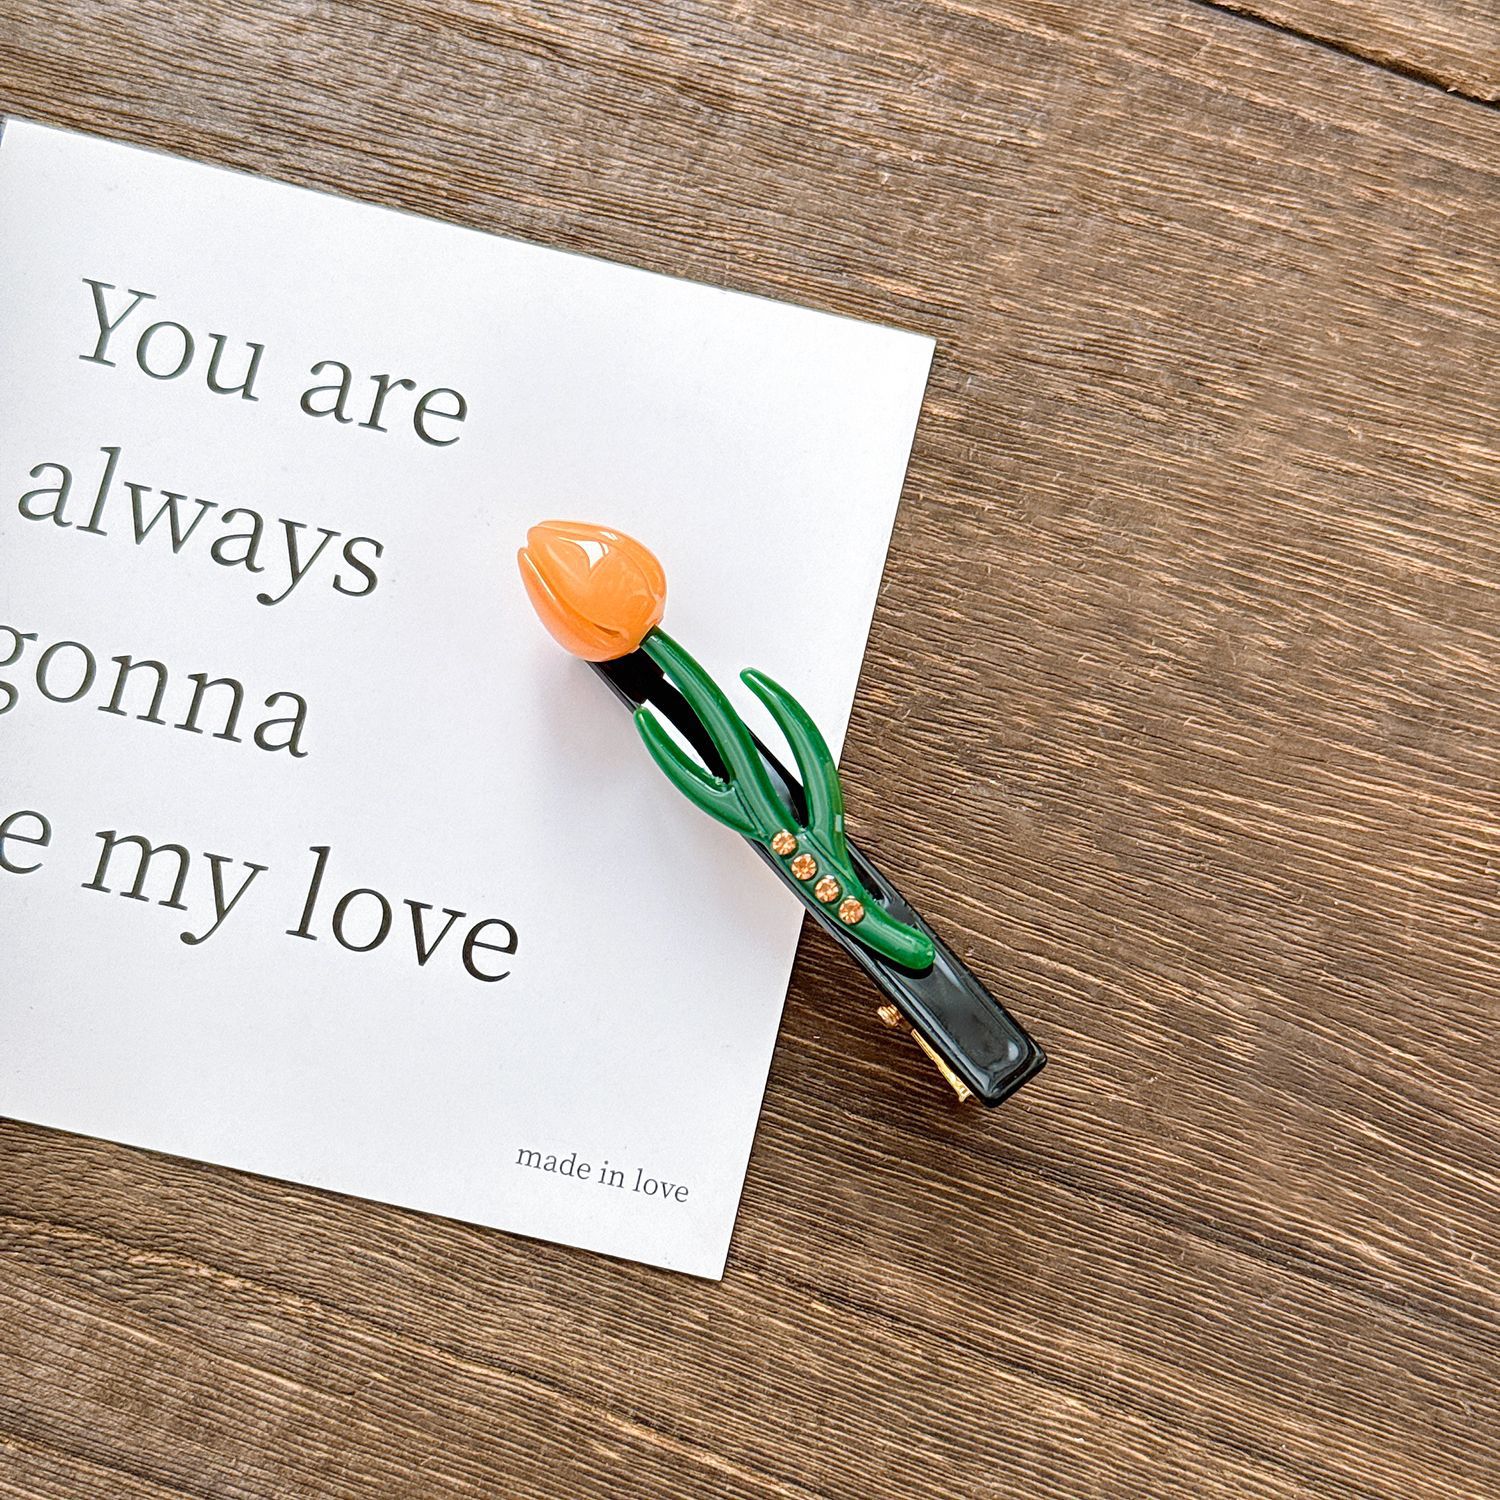 You are
always
gonna
e my love
made in love